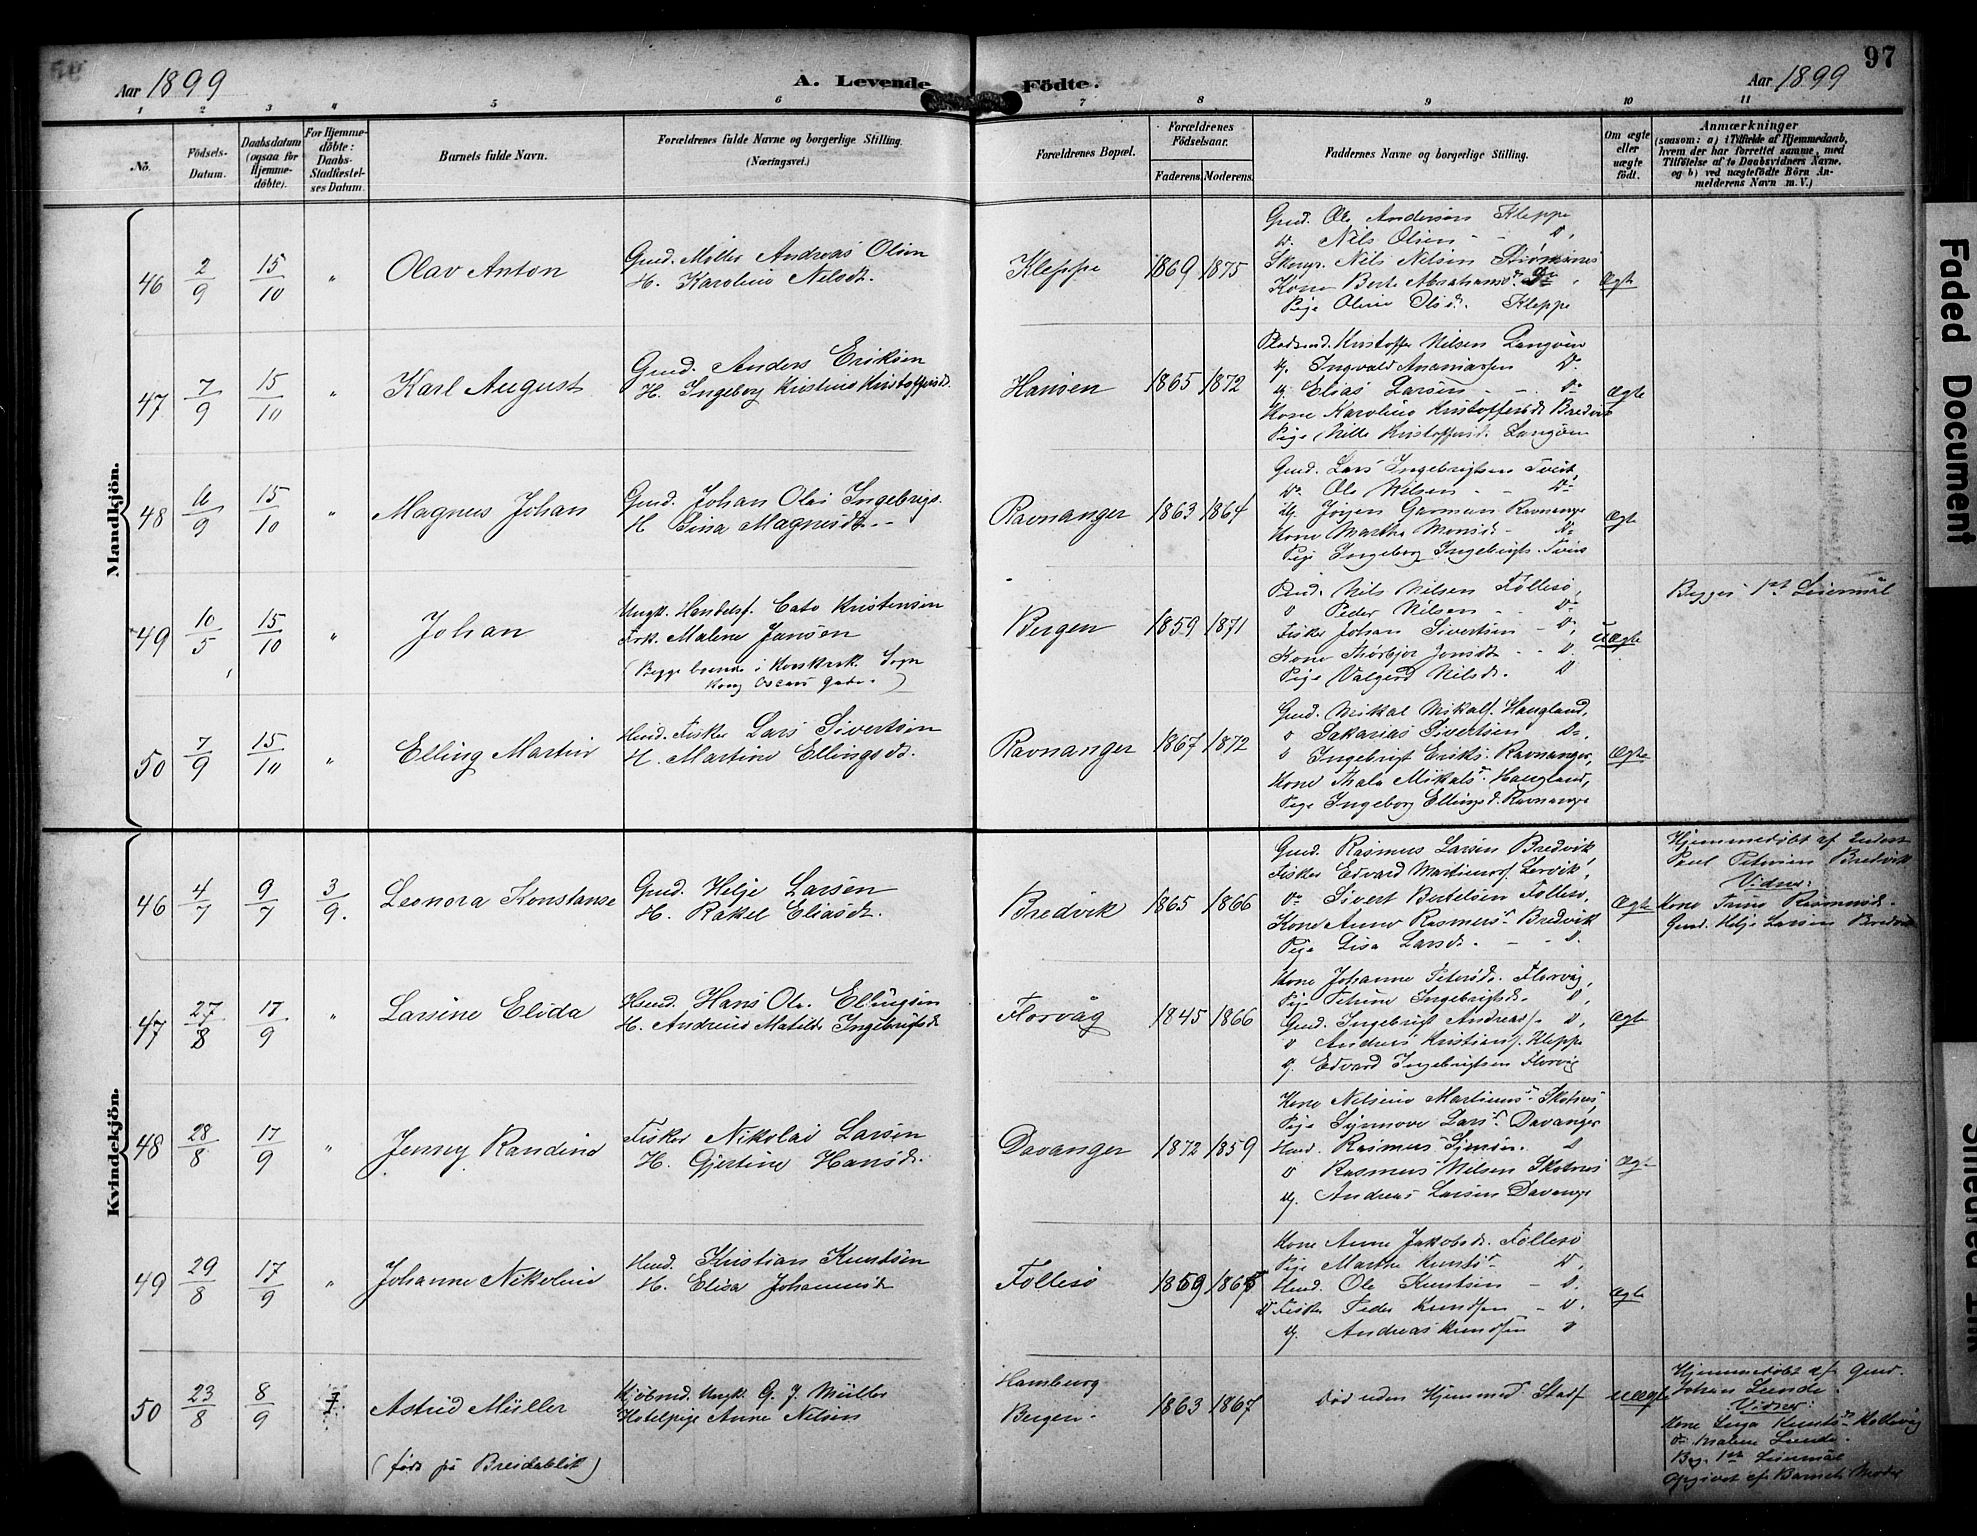 Aar 1899
A. Levende Födte.
Aar 1899
97
1 2 3 4 5 6 7 8 9 10 11
No.
Födsels-Datum.
Daabsdatum (ogsaa for Hjemme-döbte).
For Hjemme-döbte: Daabs-Stadfæstel-ses Datum.
Barnets fulde Navn.
Forældrenes fulde Navne og borgerlige Stilling. (Næringsvei.)
Forældrenes Bopæl.
Forældrenes Födselsaar.
Faderens. Moderens.
Faddernes Navne og borgerlige Stilling.
Om ægte eller uægte födt.
Anmærkninger
(saasom: a) i Tilfælde af Hjemmedaab, hvem der har forrettet samme, med Tilföielse af to Daabsvidners Navne. og b) ved uægtefödte Börn Anmelderens Navn m. V.)
Mandkjön.
46 2/9 15/10 " Olav Anton
Gmd. Andreas Olsen
H. Karoline Nilsdt.
Kleppe 1869 1875
Gmd. Ole Andersen Kleppe
Do. Nils Olsen - - D.
Nils Nilsen Strømsnes
Kone Berte Abrahamsd.
Pige Oline Olsd. Kleppe
Ægte
47 7/9 15/10 " Karl August
Gmd. Anders Eriksen
H. Ingeborg Kristine Kristoffersd.
Hansen 1865 1872
Kristoffer Nilsen Langøen
Uj. Ingvald Ananiassen Do.
Uj. Elias Larsen - - Do
Kone Karoline Kristoffersd. Bredvik
Pige Nille Kristoffersd. Langøen
Ægte
48 11/9 15/10 " Magnus Johan
Gmd. Johan Olai Ingebrigs.
H. Sina Magnusdt.
Ravnanger 1863 1864
Gmd. Lars Ingebrigtsen Tveit
Do. Ole Nilsen - - Do
Uj. Jørgen Garman Ravnange
Kone Marthe Monsd. - Do
Pige Ingeborg Ingebrigts. Tveit
Ægte
49 10/5 15/10 " Johan
Ungk. Handelsf. Cato Kristensen
Frk. Malene Jansen
(Begge boende i Korskirk. Sogn
Kong Oscars Gade.)
Bergen 1859 1871
Nils Nilsen Follesø,
D Peder Nilsen - - Do
Fisker Johan Sivertsen - D.
Kone Thorbjør Jonsdt - - D.
Pige Valgerd Nilsd. D
Uægte
Begges 1st Leiermål
50 7/9 15/10 " Elling Martin
Hmd. Fisker Lars Sivertsen
H. Martine Ellingsdt.
Ravnanger 1867 1872
Gmd. Mikal Mikals. Haugland,
D Sakarias Sivertsen Do,
D Ingebrigt Eriks. Ravnanger,
Kone Thala Mikalsd. Haugland,
Pige Ingeborg Ellingsd. Ravnange
Ægte
Kvindekjön.
46 4/7 9/7 3/9. Leonora Konstanse
Gmd. Helje Larsen
H. Rakel Eliasdt.
Bredvik 1865 1866
Gmd. Rasmus Larsen Bredvik,
Fisker Edvard Martinus. Lervik,
Do Sivert Bertelsen Follesø,
Kone Anne Rasmusd. Bredvik
Pige Lisa Larsd. - - D.
Ægte
Hjemmedøbt af
Poul Petersen Bredvik
Vidner:
Kone
Gmd. Helje Larsen Bredvik
47 27/8 17/9 " Larsine Elida
Hmd. Hans Ole Ellingsen
H. Andrine Matilde Ingebrigtsd.
Florvåg 1845 1866
Kone Johanne Petersd. Florvåg,
Pige Petrine Ingebrigtsd. D,
Gmd. Ingebrigt Andreas. D,
D Andreas Kristians. Kleppe
Uj. Edvard Ingebrigtsen Florvåg
Ægte
48 28/8 17/9 " Jenny Randine
Fisker Nikolai Larsen
H. Gjertine Hansd.
Davanger 1872 1859
Kone Nilsine Martinusd. Skotnes,
Pige Synnove Larsd. Davanger
Hmd. Rasmus Simsen. D
D Rasmus Nilsen Skotnes
Uj. Andreas Larsen Davange
Ægte
49 29/8 17/9 " Johanne Nikoline
Hmd. Kristian Knutsen
H. Elisa Johannesd.
Follesø 1859 1865
Kone Anne Jakobsd. Follesø
Pige Marthe Knutsd. D,
Hmd. Ole Knutsen - D.
D Fisker Peder Knudsen - D.
Uj. Andreas Knudsen D
Ægte
50 23/8 8/9 Astrid Müller
(født på Breidablik)
Kjøbmd. Ungk. G. J. Müller
Hotelpige Anne Nilsen
Hamburg
Bergen. 1863 1867
Død uden Hjemmed. Stadf.
Uægte
Hjemmedøbt af Gmd.
Johan Lunde.
Vidner:
Kone Inga Knutsd.
Do Malene Lunde.
Beg. 1st Leiermål
Opgivet af Barnets Moder
Faded Document
Smeared Ink